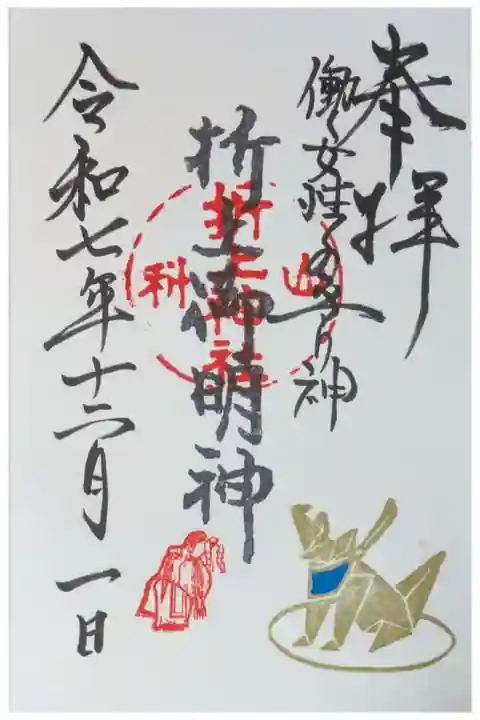 奉拝
働く女性の守り神
折上御明神
山
折上神社
科
令和七年十二月一日